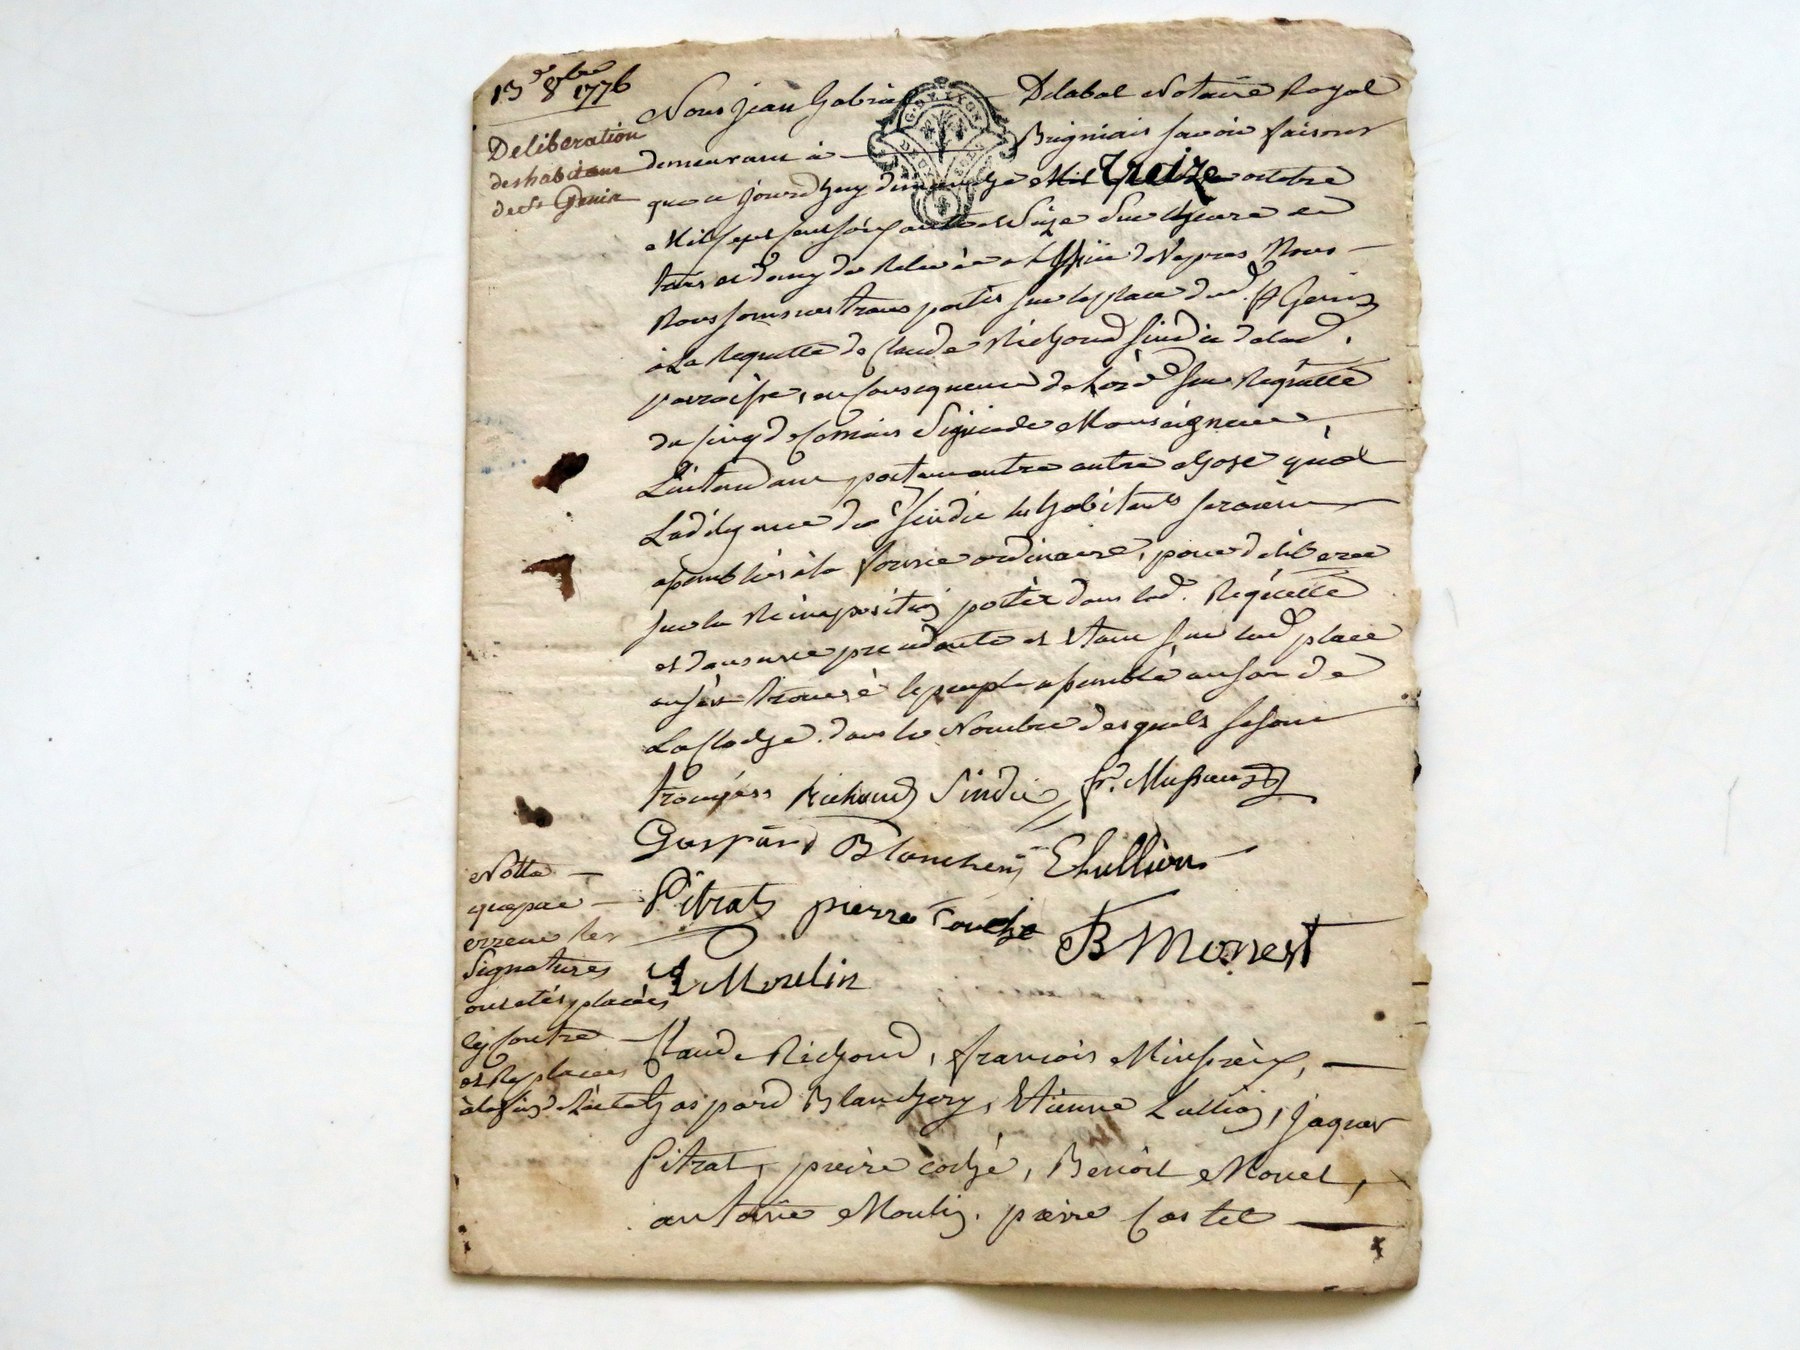 13e 8bre 1776
Deliberation
des habitans
de St Genis
Nous jean Gabriel Delabal Notaire Royal
demeurant à Brigniais savoir faisons
que ce jourdhuy dimanche treize octobre
Mil sept cent soixante et Seize Sur lheure de
de Relevée de Vepres Nous
Nous sommes transportés sur la place dud. St Genis
à La Requette de Claude Richond sindic de lad.
parroisse, en consequence de Lord. sur Requette
du Signée de Monseigneur
L'intendant portant entre autre chose qu'à
La diligence du sindic les habitants seroient
assemblés à la forme ordinaire, pour deliberer
sur la Reimposition portée dans lad. Requette
et étant sur lad place
trouvé le peuple assemblé au son de
La Cloche dans le Nombre desquels se sont
trouvéss Richond Sindic fr.
Gaspard Blanchery E Lullion
Pitrat pierre Coucho B Monest
A Moulin
Notta
que par
erreur les
Signatures
ont etés placées
cy contre
et Replacées
à la fin de L'acte
Claude Richond, francois
Gaspard Blanchery, Etienne Lullion, jaques
Pitrat, pierre cochè, Benoit Monet,
antoine Moulin, pierre Castel